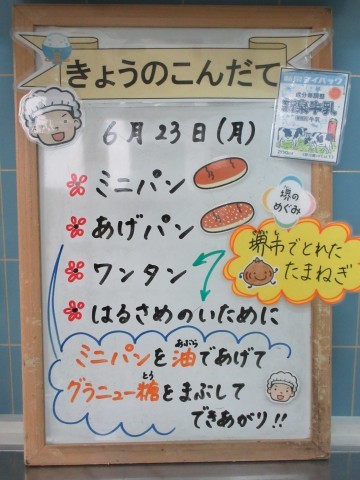 きょうのこんだて
6月23日(月)
ミニパン
あげパン
ワンタン
はるさめのいために
堺のめぐみ
堺市でとれた
たまねぎ
ミニパンを油であげて
あぶら
グラニュー糖をまぶして
とう
できあがり!!